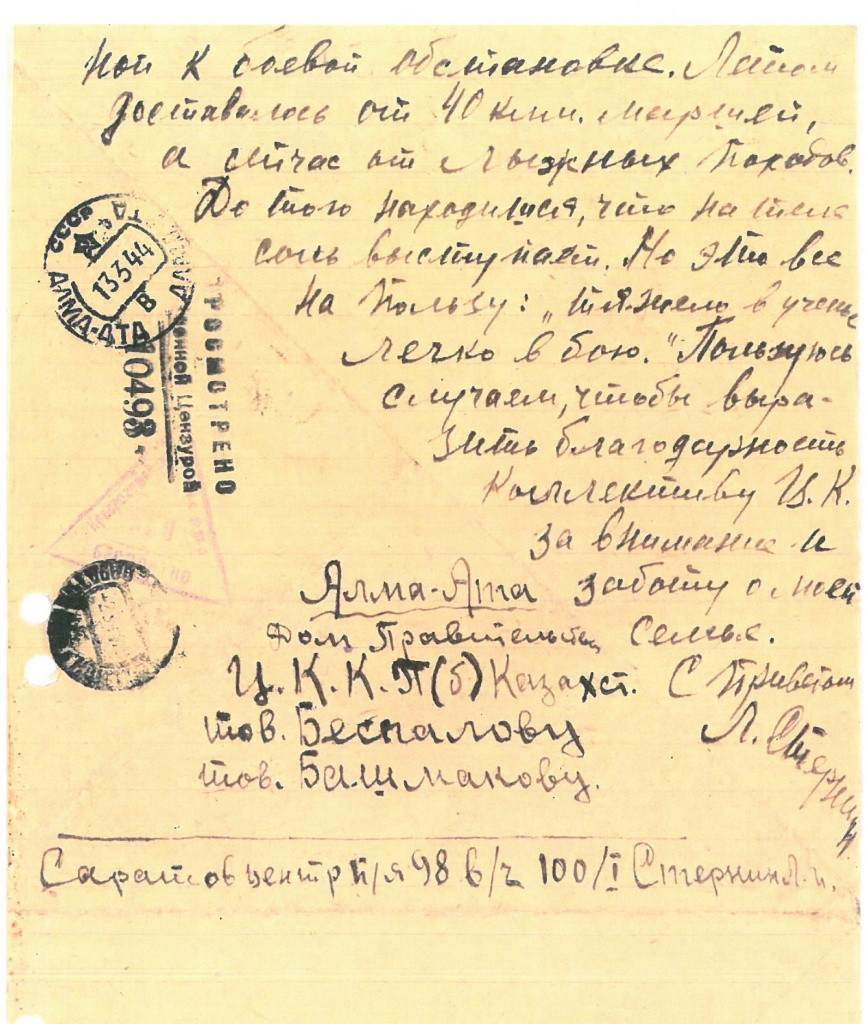 ной к боевой обстановке. Летом
доставалось от 40 клм. маршей,
а сейчас от лыжных походов.
До того находишся, что на теле
соль выступает. Но это все
на пользу: „тяжело в ученье
легко в бою." Пользуюсь
случаем, чтобы выра-
зить благодарность
коллективу Ц.К.
за внимание и
заботу о моей
семье.
С приветом
Л. Стернин
СССР
АЛМА-АТА
13 3 44
В
ПРОСМОТРЕНО
Военной Цензурой
10498
Алма-Ата
Дом Правительства
Ц.К.К.П(б) Казахст.
тов. Беспалову
тов. Башмакову.
Саратов центр п/я 98 в/ч 100/I Стернин Л.И.